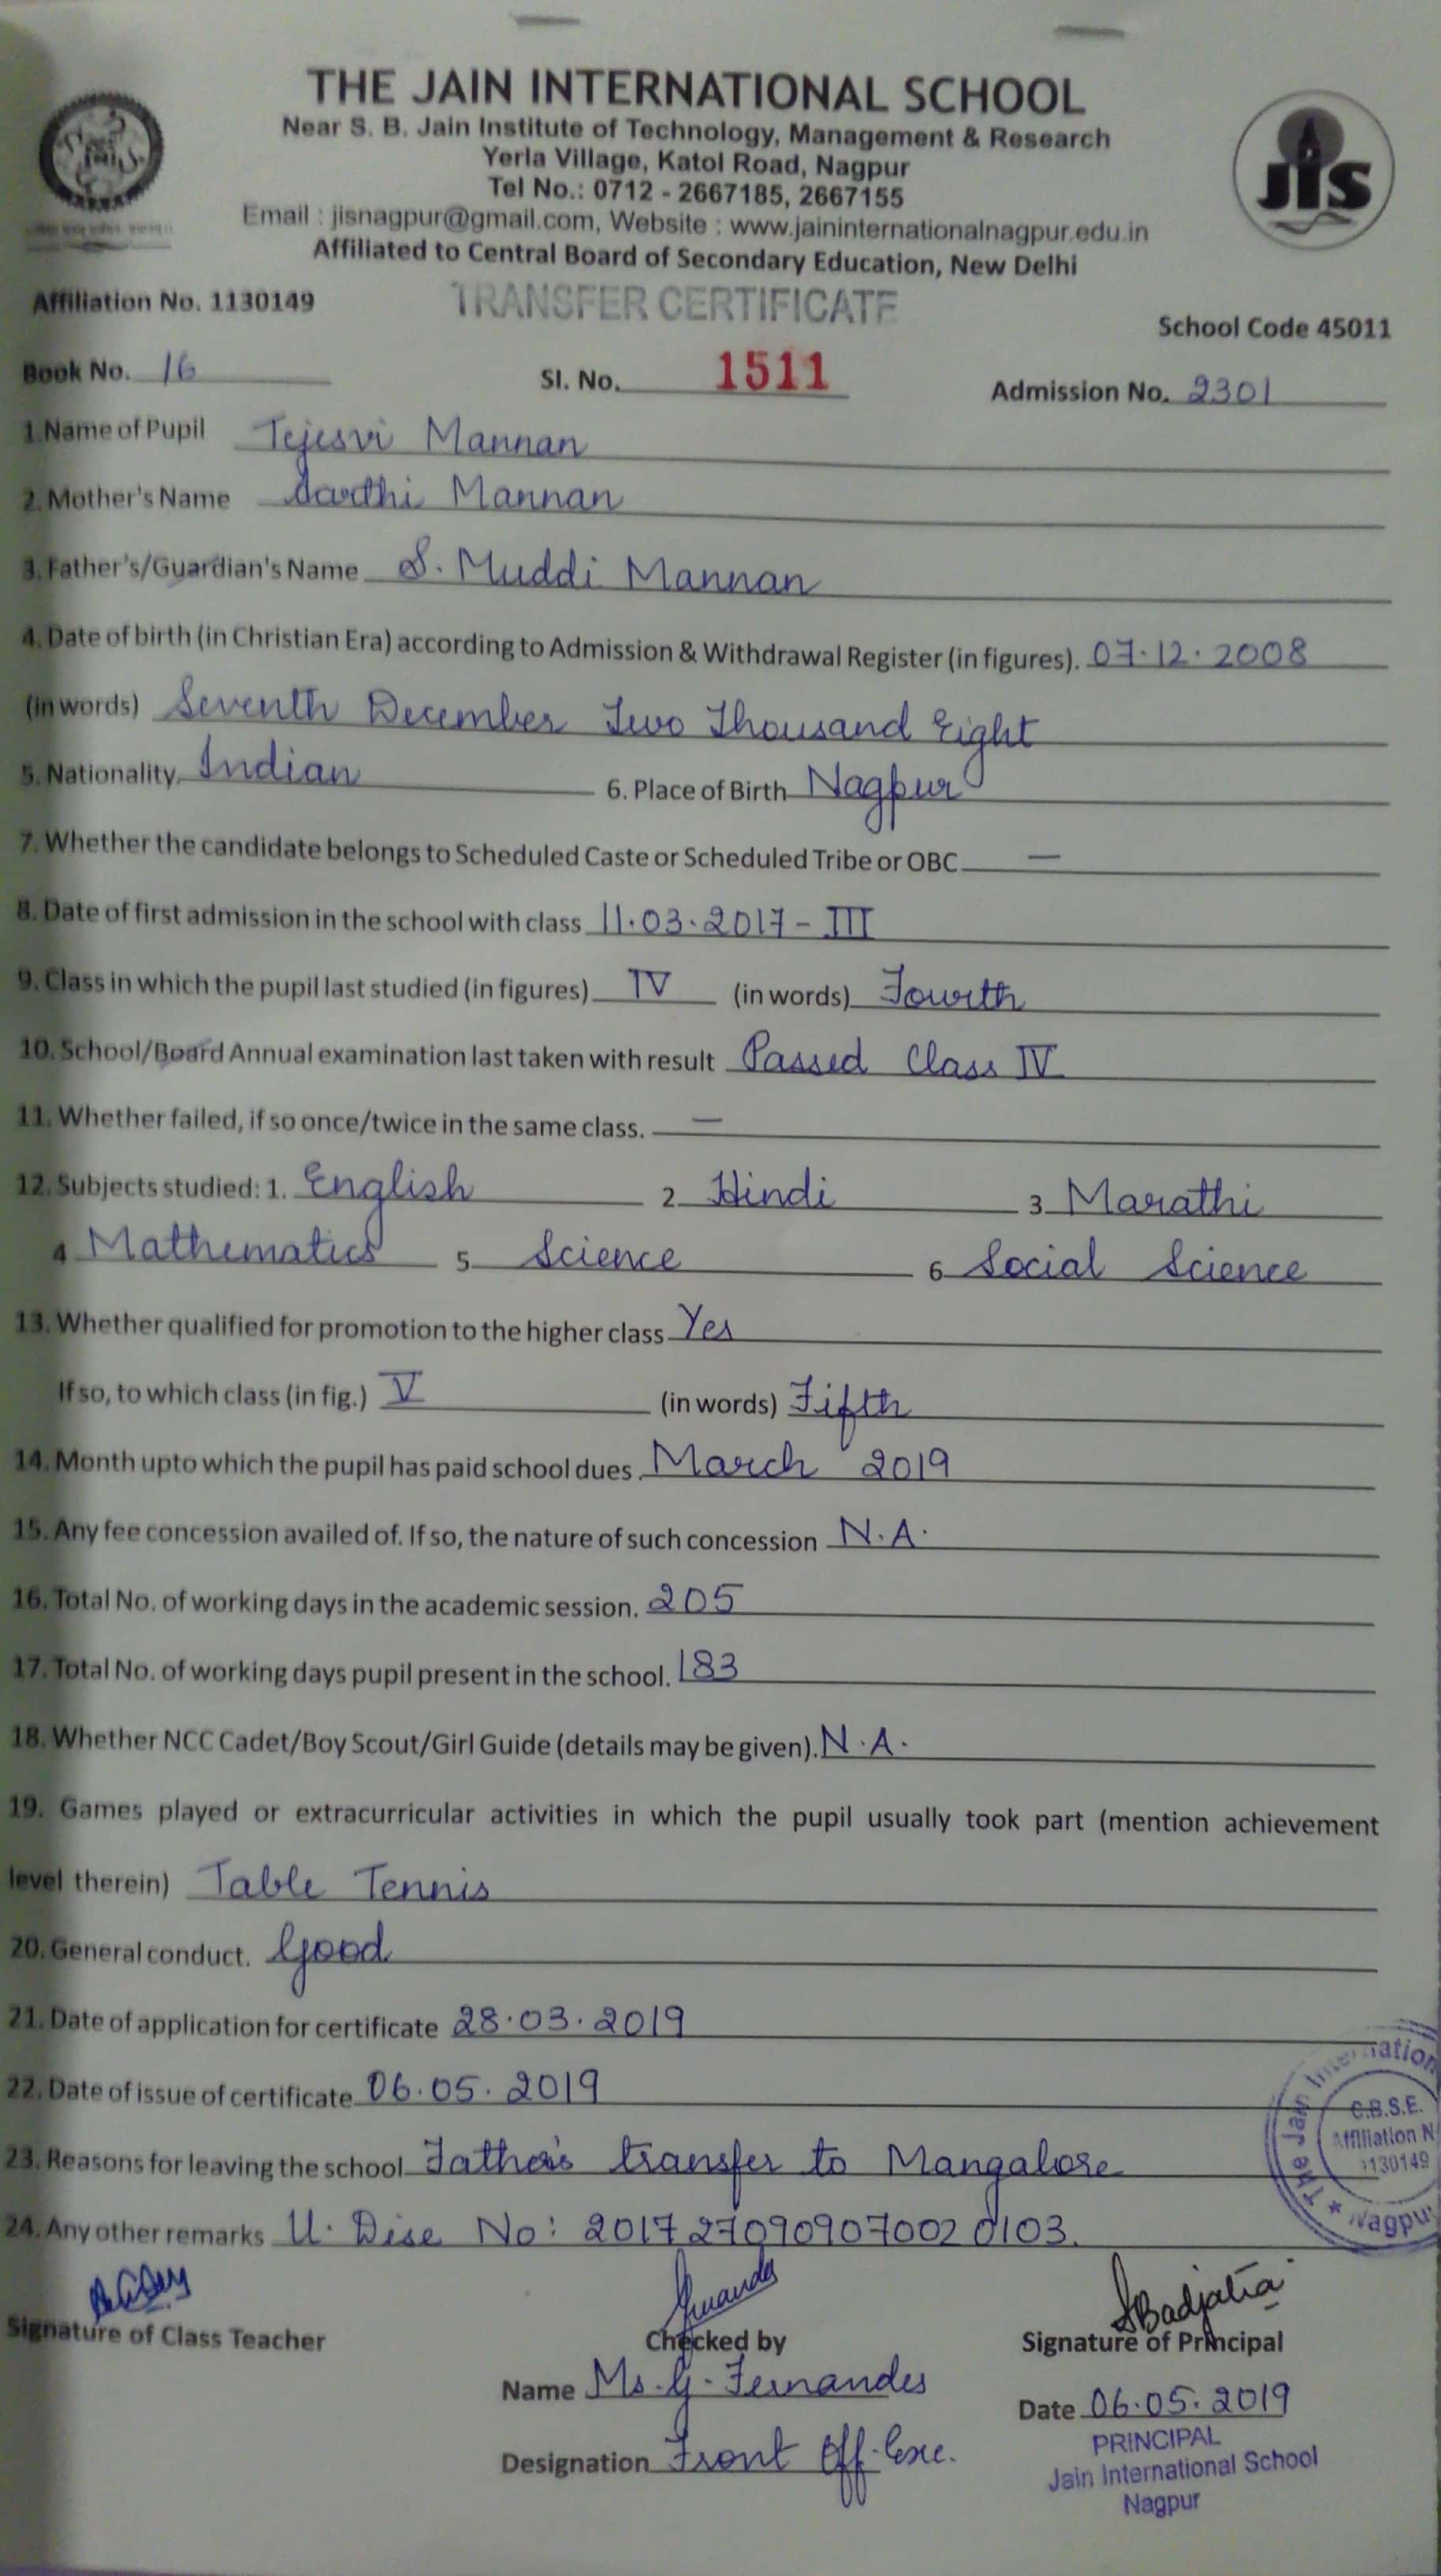 THE JAIN INTERNATIONAL SCHOOL
Near S. B. Jain Institute of Technology, Management & Research
Yerla Village, Katol Road, Nagpur
Tel No.: 0712 - 2667185, 2667155
Email : jisnagpur@gmail.com, Website : www.jaininternationalnagpur.edu.in
Affiliated to Central Board of Secondary Education, New Delhi
JIS
Affiliation No. 1130149 TRANSFER CERTIFICATE School Code 45011
Book No. 16 Sl. No. 1511 Admission No. 2301
1.Name of Pupil Tejesvi Mannan
2. Mother's Name Aarthi Mannan
3. Father's/Guardian's Name S. Muddi Mannan
4. Date of birth (in Christian Era) according to Admission & Withdrawal Register (in figures). 07.12.2008
(in words) Seventh December Two Thousand Eight
5. Nationality. Indian 6. Place of Birth Nagpur
7. Whether the candidate belongs to Scheduled Caste or Scheduled Tribe or OBC —
8. Date of first admission in the school with class 11.03.2017 - III
9. Class in which the pupil last studied (in figures) IV (in words) Fourth
10. School/Board Annual examination last taken with result Passed Class IV
11. Whether failed, if so once/twice in the same class. —
12. Subjects studied: 1. English 2. Hindi 3. Marathi
4 Mathematics 5 Science 6 Social Science
13. Whether qualified for promotion to the higher class Yes
If so, to which class (in fig.) V (in words) Fifth
14. Month upto which the pupil has paid school dues. March 2019
15. Any fee concession availed of. If so, the nature of such concession N.A.
16. Total No. of working days in the academic session. 205
17. Total No. of working days pupil present in the school. 183
18. Whether NCC Cadet/Boy Scout/Girl Guide (details may be given). N.A.
19. Games played or extracurricular activities in which the pupil usually took part (mention achievement
level therein) Table Tennis
20. General conduct. Good
21. Date of application for certificate 28.03.2019
22. Date of issue of certificate 06.05.2019
23. Reasons for leaving the school Father's transfer to Mangalore
24. Any other remarks U. Dise No: 2017270909070020103.
The Jain Internation
C.B.S.E.
Affiliation N
1130149
Nagpu
SBadjatia
Signature of Class Teacher Checked by Signature of Principal
Name Ms. G. Fernandes Date 06.05.2019
Designation Front Off. Exe.
PRINCIPAL
Jain International School
Nagpur